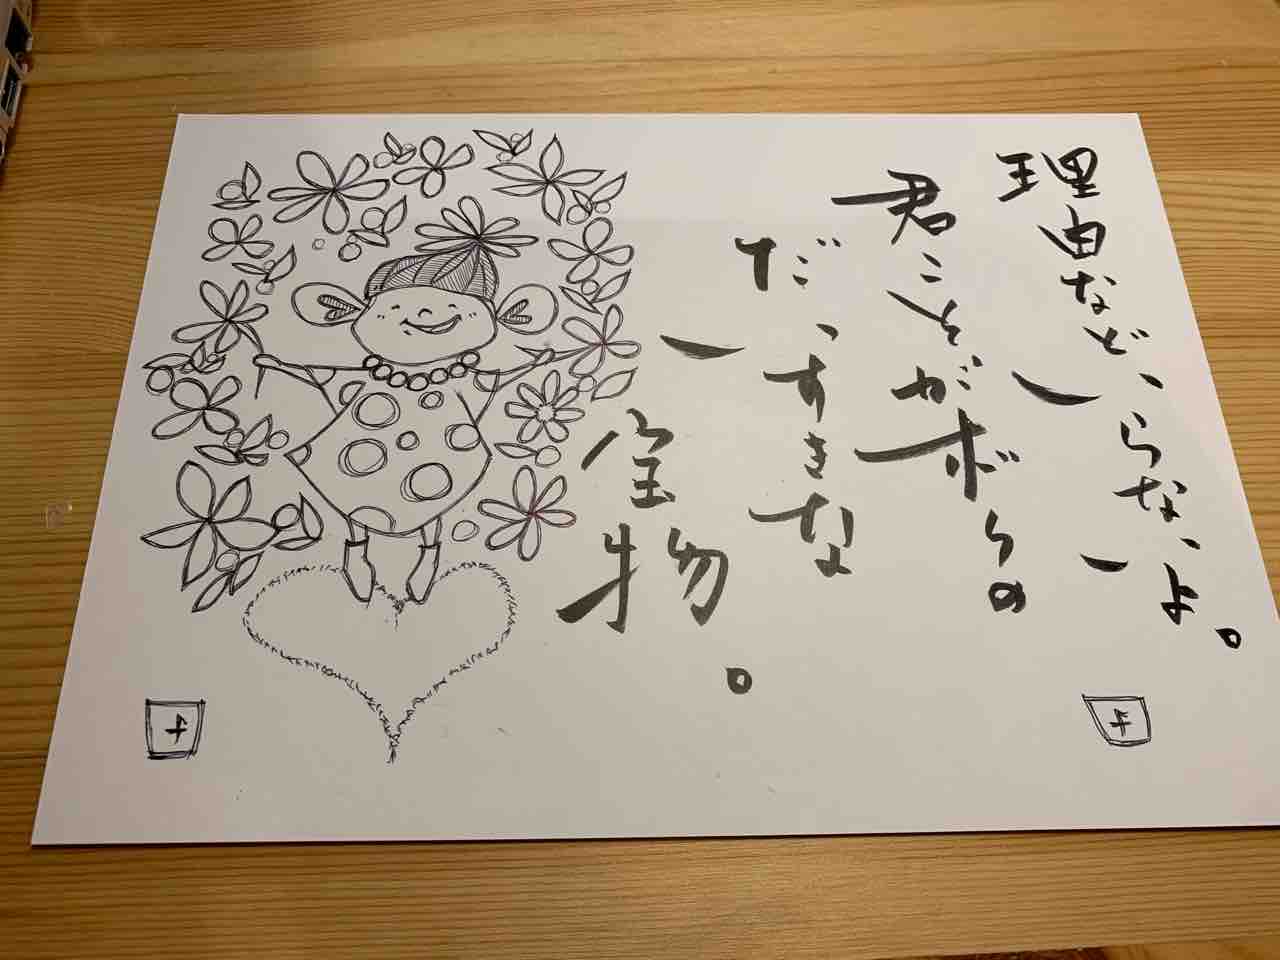 理由などいらないよ。
君こそがボクの
だいすきな
宝物。